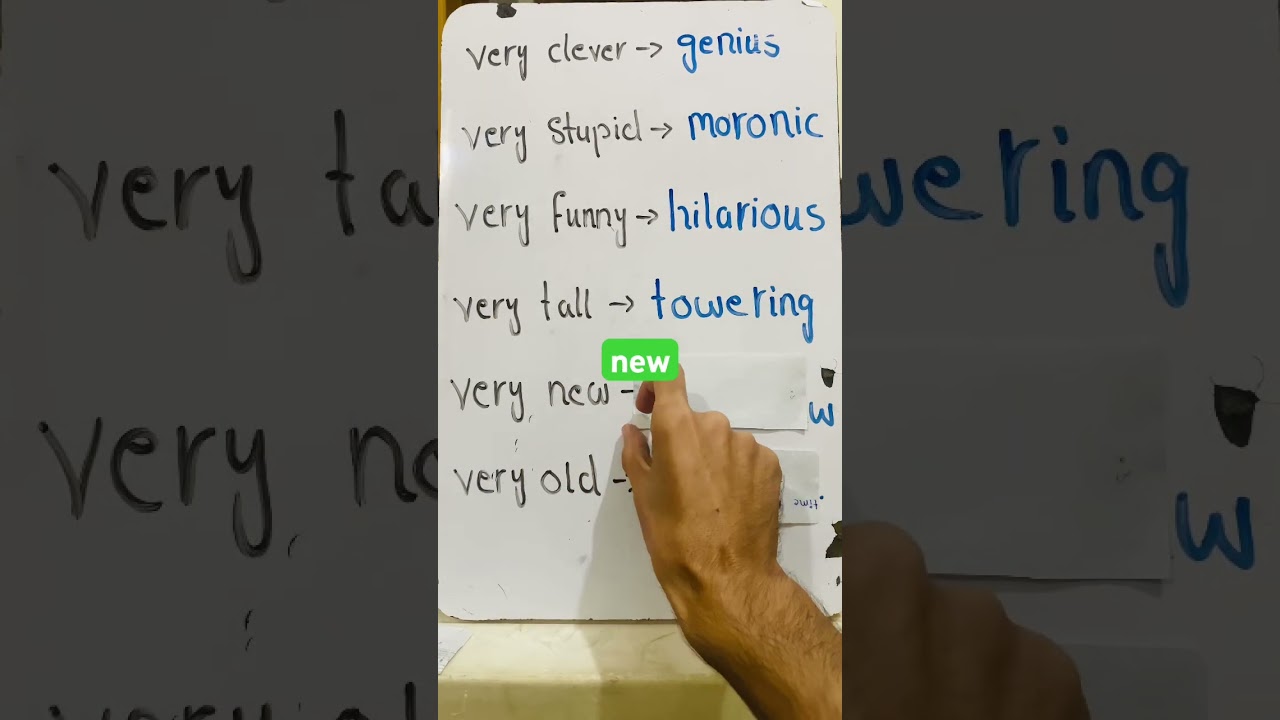 very clever → genius
very stupid → moronic
very funny → hilarious
very tall → towering
new
very new - w
very old →
time